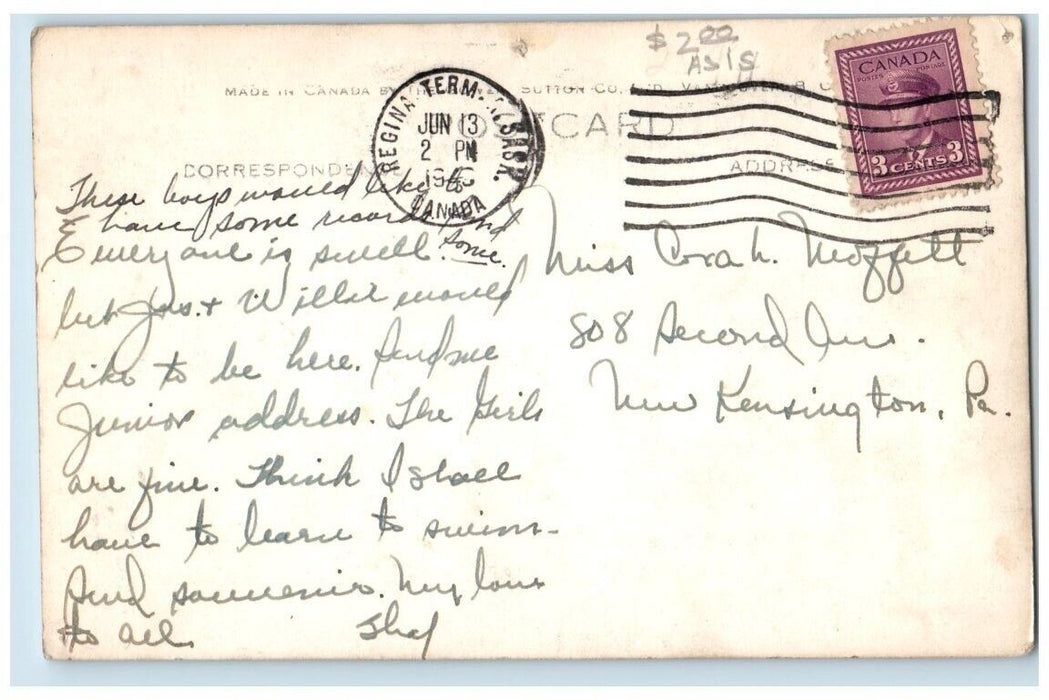 $2.00
AS IS
MADE IN CANADA BY THE SUTTON CO. LTD. VANCOUVER, B.C.
POSTCARD
CORRESPONDENCE
ADDRESS
REGINA TERM. SASK.
JUN 13
2 PM
CANADA
CANADA
POSTES POSTAGE
3 CENTS 3
These boys would like to
have some records send
some.
Everyone is swell
but Jas. + Willie would
like to be here. Send me
Junior address. The Girls
are fine. Think I shall
have to learn to swim-
Send souvenir. My love
to all.
Miss Cora L. Moffett
808 Second Ave.
New Kensington, Pa.